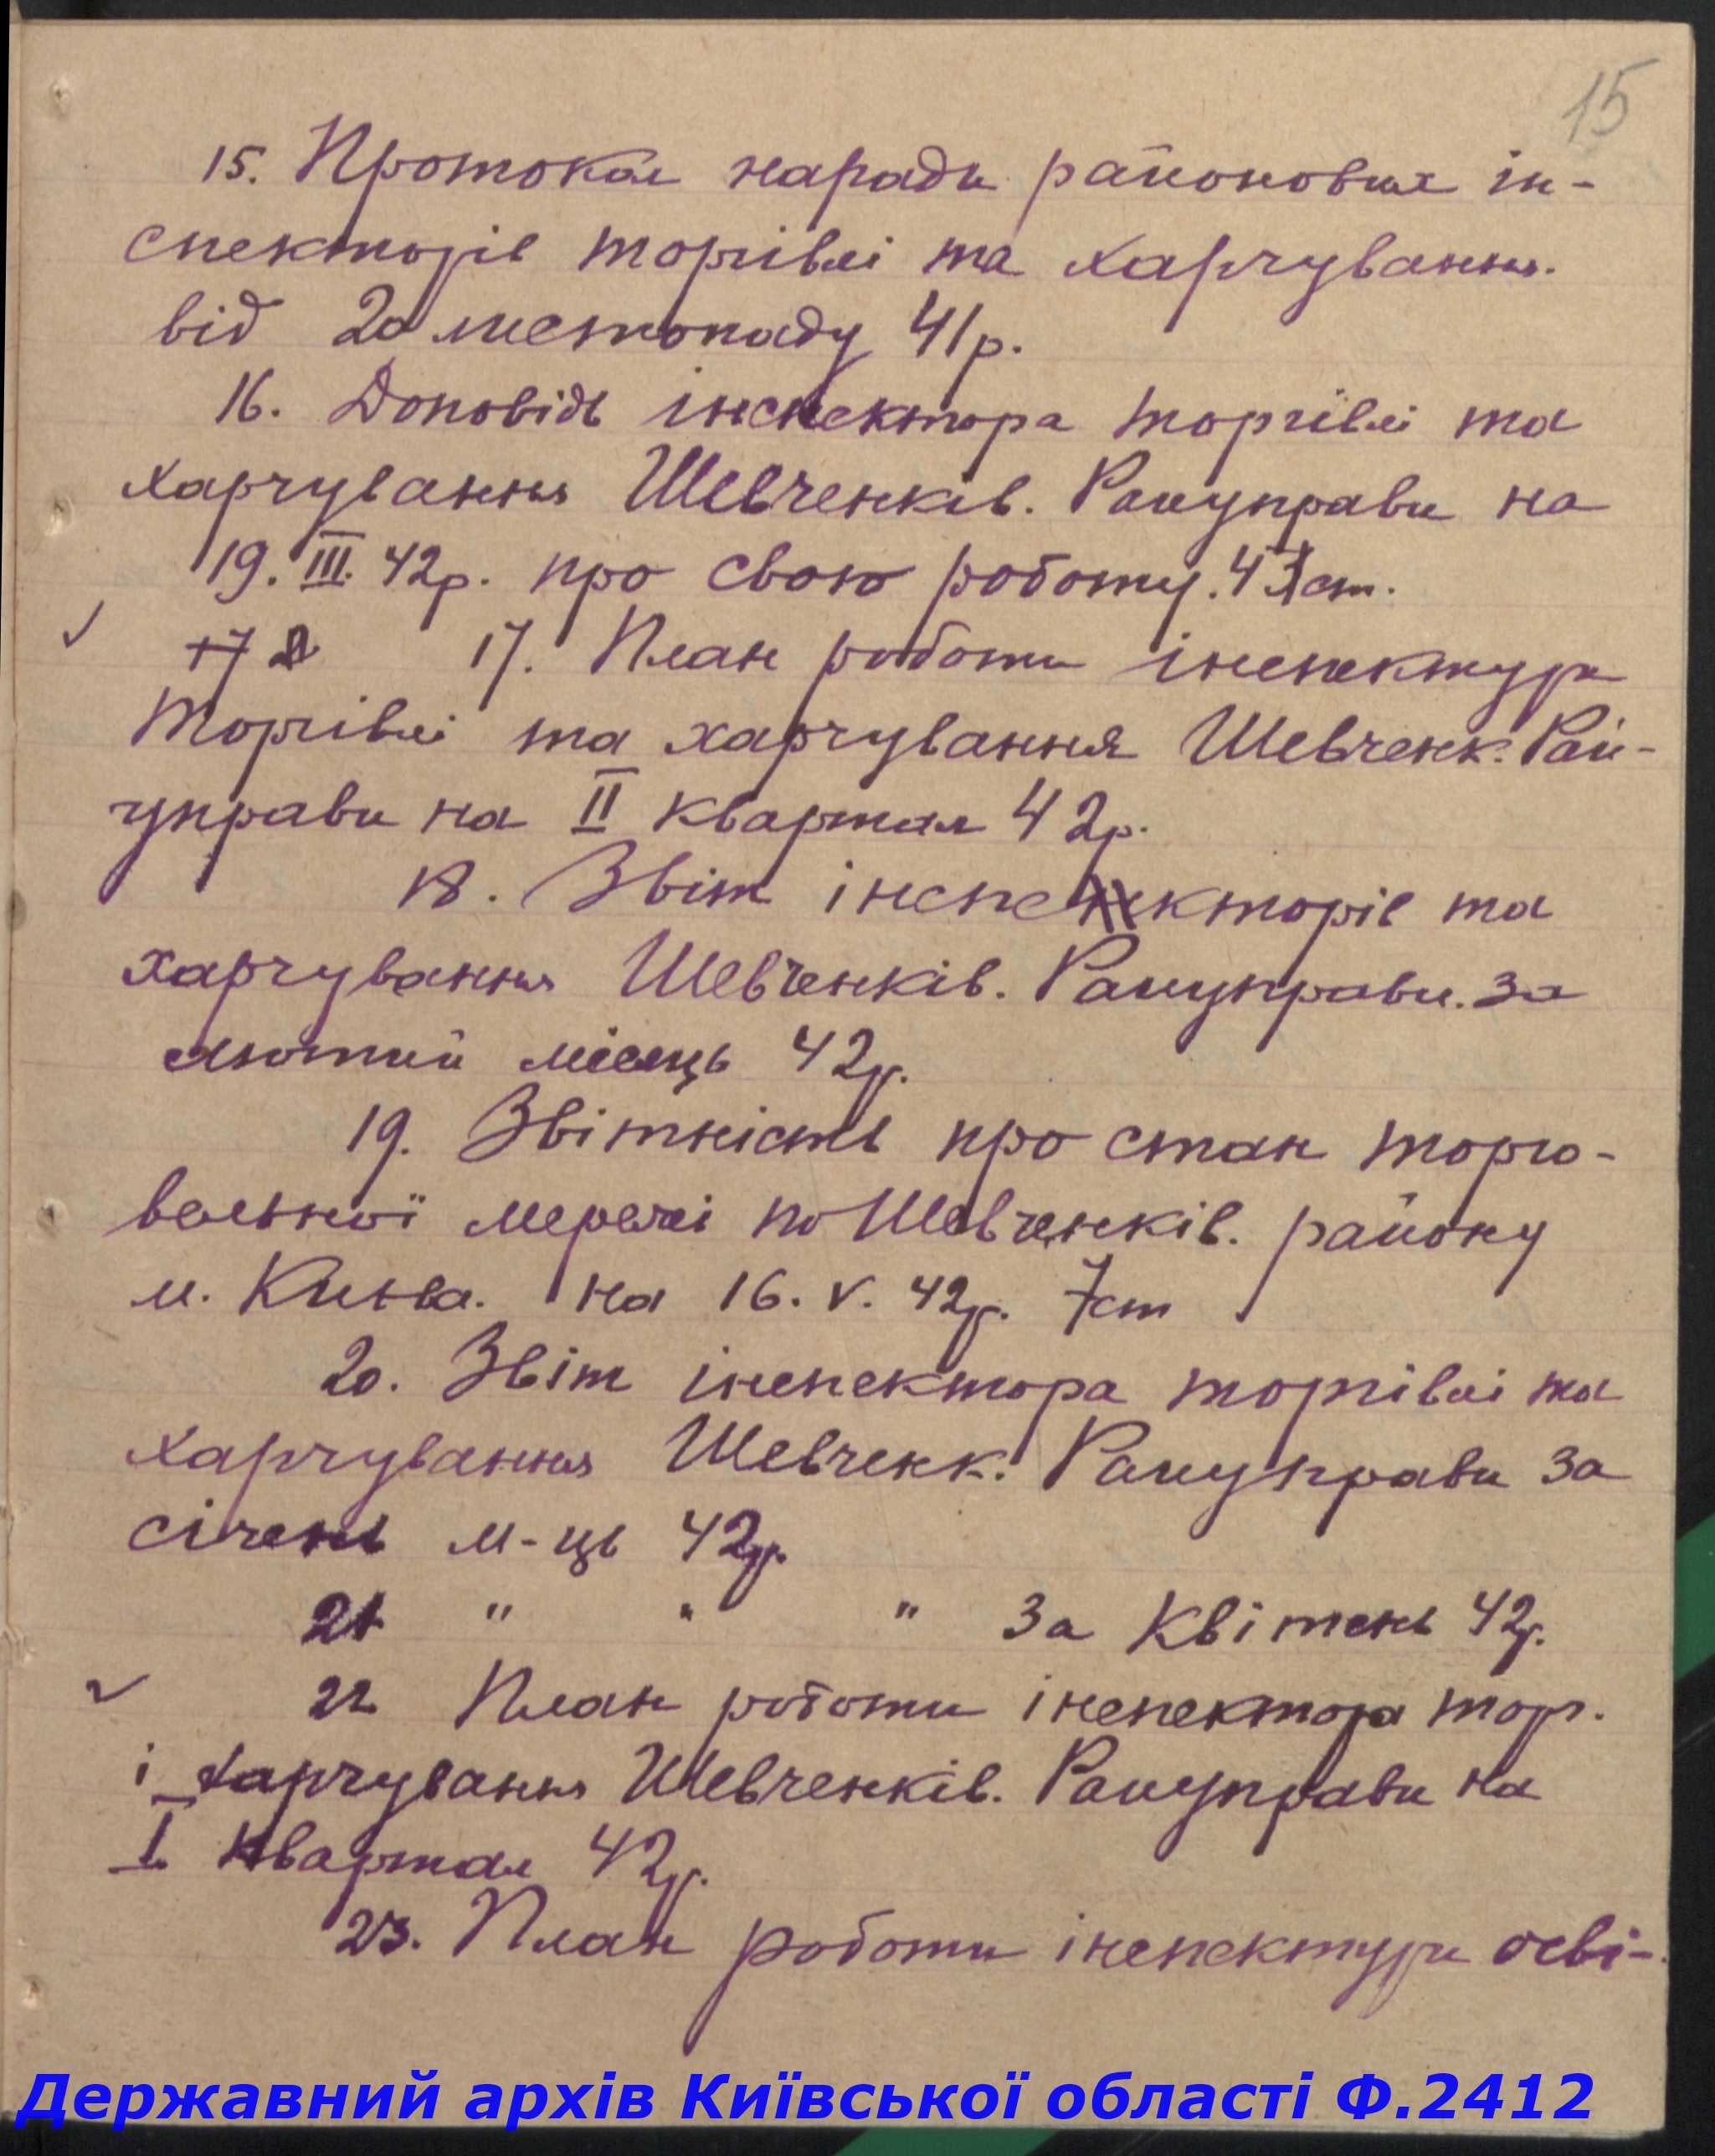 15
15. Протокол наради районових ін-
спекторів торгівлі та харчування.
від 20 листопаду 41р.
16. Доповідь інспектора торгівлі та
харчування Шевченків. Райуправи на
19.III.42р. про свою роботу. 4 ст.
17 17. План роботи інспектури
торгівлі та харчування Шевченк. Рай-
управи на II квартал 42р.
18. Звіт інспекторів та
харчування Шевченків. Райуправи. за
лютий місяць 42р.
19. Звітність про стан торго-
вельної мережі по Шевченків. району
м. Києва. на 16.V.42р. 7ст
20. Звіт інспектора торгівлі та
харчування Шевченк. Райуправи за
січень м-ць 42р.
21 " " " за квітень 42р.
22 План роботи інспектора торг.
і харчування Шевченків. Райуправи на
I квартал 42р.
23. План роботи інспектури осві-
Державний архів Київської області Ф.2412